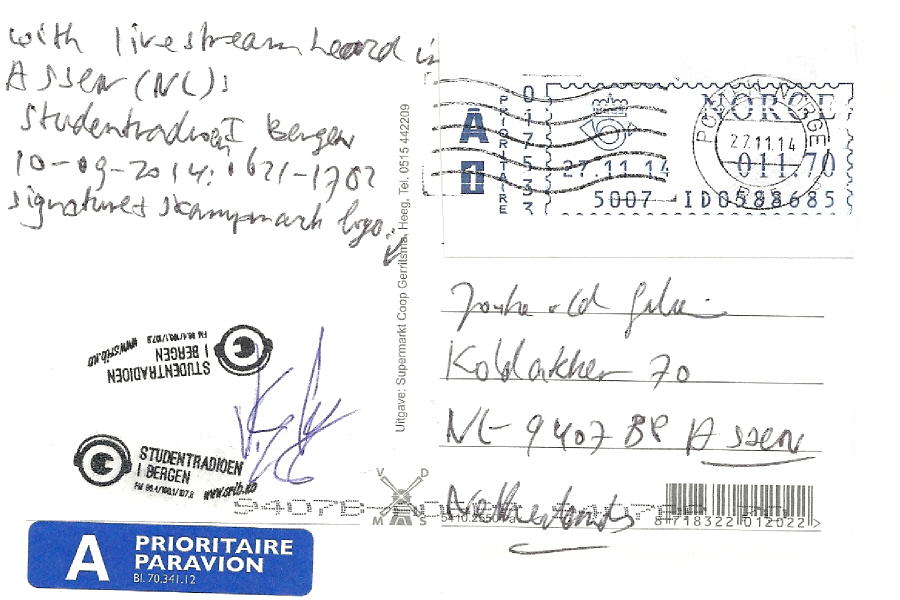 with livestream heard in
Assen (NL):
StudentradioenI Bergen
10-09-2014: 1621-1702
signature + stampmark logo:
Uitgave: Supermarkt Coop Gerritsma, Heeg, Tel. 0515 442209
A
1
PRIORITAIRE
0175333
NORGE
27.11.14
011.70
5007 ID0588685
POSTEN NORGE
27.11.14
Koldakker 70
NL-9407 BP Assen
Netherlands
STUDENTRADIOEN
I BERGEN
FM 96.4/100.1/107.8
www.srib.no
STUDENTRADIOEN
I BERGEN
FM 96.4/100.1/107.8
www.srib.no
V D
M S
8 718322 012022 >
A PRIORITAIRE
PAR AVION
Bl. 70.341.12